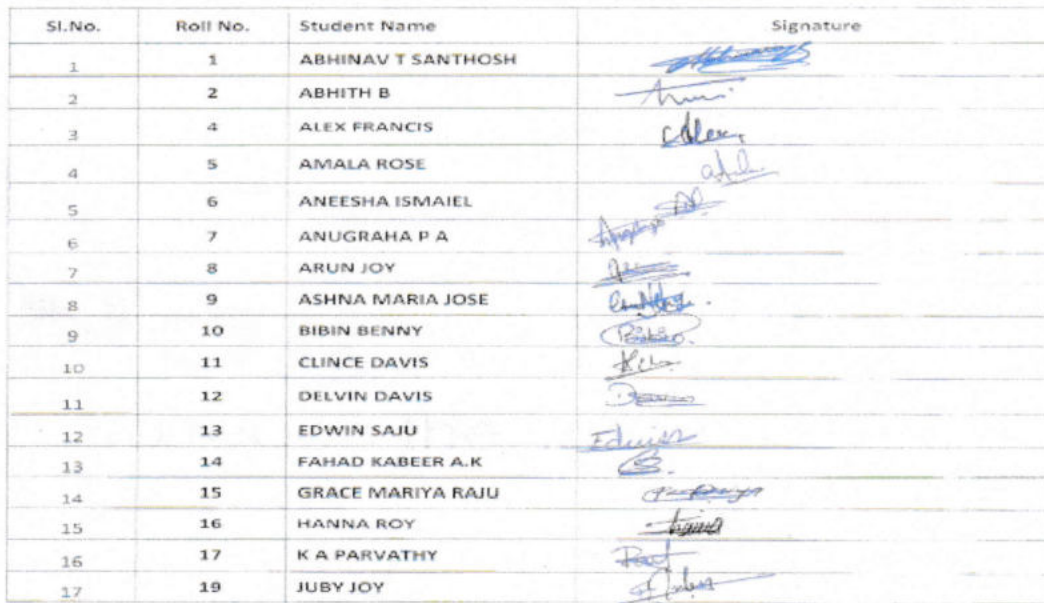 Sl.No. Roll No. Student Name Signature
1 1 ABHINAV T SANTHOSH
2 2 ABHITH B
3 4 ALEX FRANCIS Alex
4 5 AMALA ROSE
5 6 ANEESHA ISMAIEL
6 7 ANUGRAHA P A
7 8 ARUN JOY
8 9 ASHNA MARIA JOSE
9 10 BIBIN BENNY
10 11 CLINCE DAVIS
11 12 DELVIN DAVIS
12 13 EDWIN SAJU Edwin
13 14 FAHAD KABEER A.K
14 15 GRACE MARIYA RAJU
15 16 HANNA ROY
16 17 K A PARVATHY
17 19 JUBY JOY